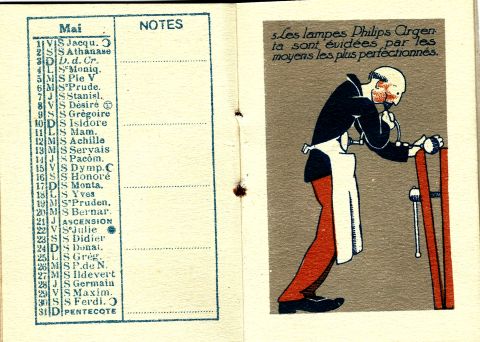 Mai
1 V S Jacqu.
2 S S Athanase
3 D D. d. Cr.
4 L Sᵉ Moniq.
5 M S Pie V
6 M Sᵉ Prude.
7 J S Stanisl.
8 V S Désiré
9 S S Grégoire
10 D S Isidore
11 L S Mam.
12 M S Achille
13 M S Servais
14 J S Pacôm.
15 V S Dymp.
16 S S Honoré
17 D S Monta.
18 L S Yves
19 M Sᵉ Pruden.
20 M S Bernar.
21 J ASCENSION
22 V Sᵉ Julie
23 S S Didier
24 D S Donat.
25 L S Grég.
26 M S P. de N.
27 M S Ildevert
28 J S Germain
29 V S Maxim.
30 S S Ferdi.
31 D PENTECOTE
NOTES
5. Les lampes Philips Argen-
ta sont évidées par les
moyens les plus perfectionnés.